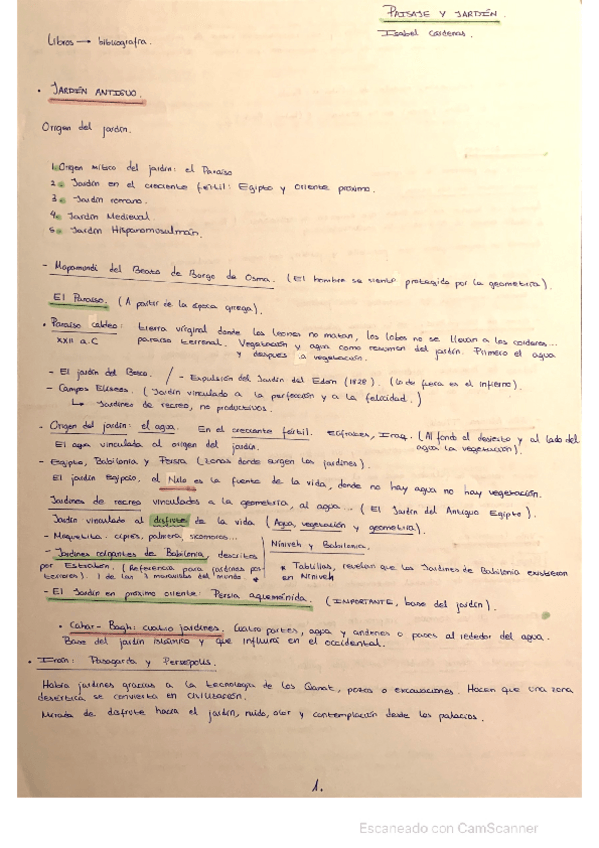 PAISAJE Y JARDÍN.
Isabel Cárdenas.
Libros → bibliografía.
• JARDÍN ANTIGUO.
Origen del jardín.
1. Origen mítico del jardín: el Paraíso
2. Jardín en el creciente fértil: Egipto y Oriente próximo.
3. Jardín romano.
4. Jardín Medieval.
5. Jardín Hispanomusulmán.
- Mapamondi del Beato de Borgo de Osma. (El hombre se siente protegido por la geometría).
El Paraíso. (A partir de la época griega).
• Paraíso caldeo: tierra virginal donde los leones no matan, los lobos no se llevan a los corderos...
XXII a.C paraíso terrenal. Vegetación y agua como resumen del jardín. Primero el agua
y después la vegetación.
- El jardín del Bosco. / - Expulsión del Jardín del Edem (1828). (Lo de fuera es el infierno).
- Campos Elíseos. (Jardín vinculado a la perfección y a la felicidad.)
↳ Jardines de recreo, no productivos.
- Origen del jardín: el agua. En el creciente fértil. Eúfrates, Iraq. (Al fondo el desierto y al lado del
El agua vinculada al origen del jardín. agua la vegetación).
- Egipto, Babilonia y Persia (zonas donde surgen los jardines).
El jardín Egipcio, el Nilo es la fuente de la vida, donde no hay agua no hay vegetación.
Jardines de recreo vinculados a la geometría, al agua... (El Jardín del Antiguo Egipto).
Jardín vinculado al disfrute de la vida (Agua, vegetación y geometría).
- Maquetita. ciprés, palmera, sicomoros...
- Jardines colgantes de Babilonia, descritos
por Estrabón. (Referencia para jardines por
terrazas). 1 de las 7 maravillas del mundo. *
Níniveh y Babilonia.
* Tablillas, revelan que los Jardines de Babilonia existieron
en Níniveh
- El Jardín en próximo oriente: Persia aqueménida. (IMPORTANTE, base del jardín).
• Cahar-Bagh: cuatro jardines. Cuatro partes, agua y andenes o paseos al rededor del agua.
Base del jardín islámico y que influirá en el occidental.
• Irán: Pasagarda y Persépolis.
Había jardines gracias a la tecnología de los Qanat, pozos o excavaciones. Hacen que una zona
desértica se convierta en civilización.
Mirada de disfrute hacia el jardín, ruido, olor y contemplación desde los palacios.
1.
Escaneado con CamScanner